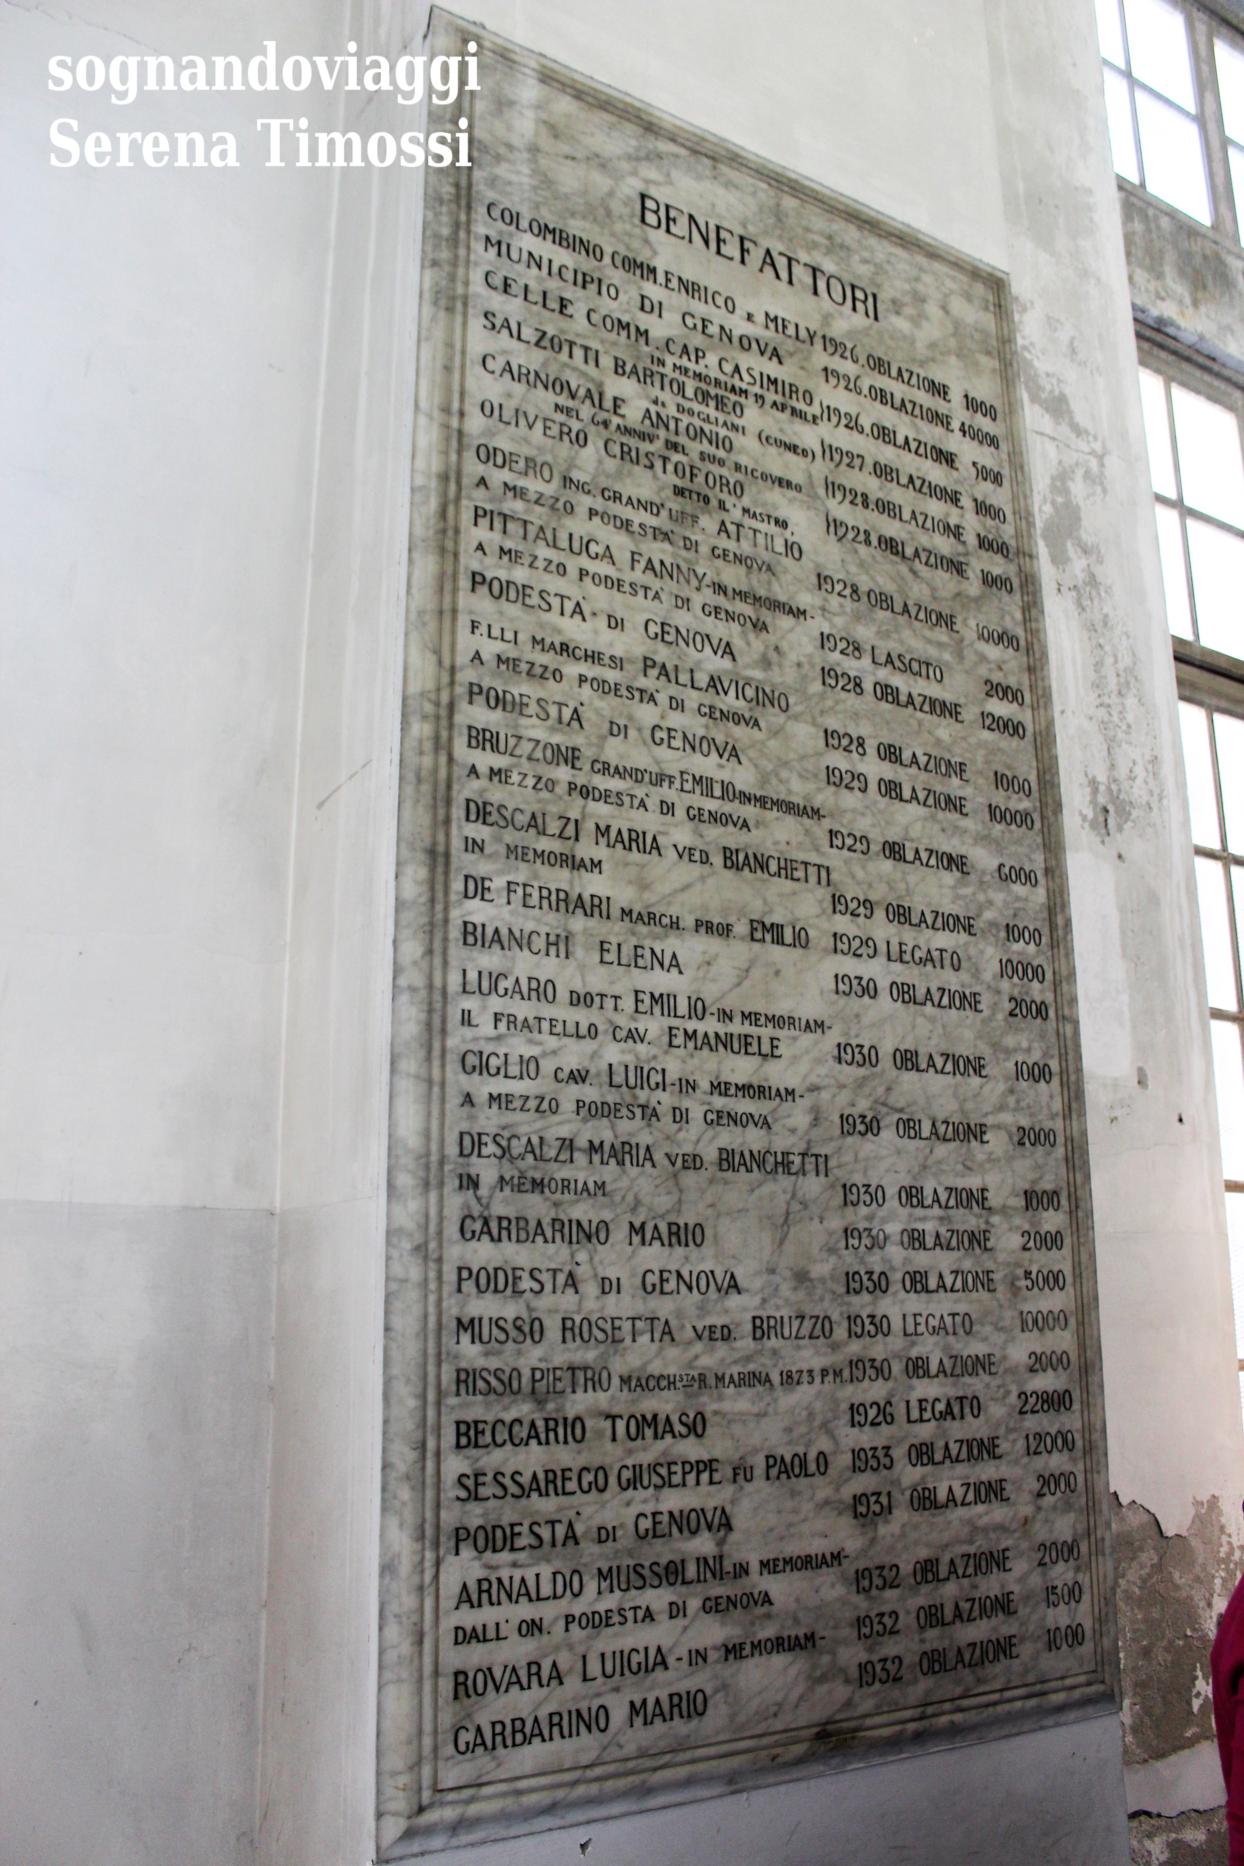 sognandoviaggi
Serena Timossi
BENEFATTORI
COLOMBINO COMM. ENRICO E MELY 1926. OBLAZIONE 1000
MUNICIPIO DI GENOVA 1926. OBLAZIONE 40000
CELLE COMM. CAP. CASIMIRO
IN MEMORIAM 19 APRILE } 1926. OBLAZIONE 5000
SALZOTTI BARTOLOMEO
da DOGLIANI (CUNEO) } 1927. OBLAZIONE 1000
CARNOVALE ANTONIO
NEL 64° ANNIV° DEL SUO RICOVERO } 1928. OBLAZIONE 1000
OLIVERO CRISTOFORO
DETTO IL 'MASTRO, } 1928. OBLAZIONE 1000
ODERO ING. GRAND'UFF. ATTILIO
A MEZZO PODESTA' DI GENOVA 1928 OBLAZIONE 10000
PITTALUGA FANNY-IN MEMORIAM-
A MEZZO PODESTA' DI GENOVA 1928 LASCITO 2000
PODESTA'- DI GENOVA 1928 OBLAZIONE 12000
F.LLI MARCHESI PALLAVICINO
A MEZZO PODESTA' DI GENOVA 1928 OBLAZIONE 1000
PODESTA' DI GENOVA 1929 OBLAZIONE 10000
BRUZZONE GRAND'UFF. EMILIO-IN MEMORIAM-
A MEZZO PODESTA' DI GENOVA 1929 OBLAZIONE 6000
DESCALZI MARIA VED. BIANCHETTI
IN MEMORIAM 1929 OBLAZIONE 1000
DE FERRARI MARCH. PROF. EMILIO 1929 LEGATO 10000
BIANCHI ELENA 1930 OBLAZIONE 2000
LUGARO DOTT. EMILIO-IN MEMORIAM-
IL FRATELLO CAV. EMANUELE 1930 OBLAZIONE 1000
GIGLIO CAV. LUIGI-IN MEMORIAM-
A MEZZO PODESTA' DI GENOVA 1930 OBLAZIONE 2000
DESCALZI MARIA VED. BIANCHETTI
IN MEMORIAM 1930 OBLAZIONE 1000
GARBARINO MARIO 1930 OBLAZIONE 2000
PODESTA' DI GENOVA 1930 OBLAZIONE 5000
MUSSO ROSETTA VED. BRUZZO 1930 LEGATO 10000
RISSO PIETRO MACCH.STA R. MARINA 1873 P.M. 1930 OBLAZIONE 2000
BECCARIO TOMASO 1926 LEGATO 22800
SESSAREGO GIUSEPPE FU PAOLO 1933 OBLAZIONE 12000
PODESTA' DI GENOVA 1931 OBLAZIONE 2000
ARNALDO MUSSOLINI-IN MEMORIAM-
DALL' ON. PODESTA DI GENOVA 1932 OBLAZIONE 2000
ROVARA LUIGIA-IN MEMORIAM- 1932 OBLAZIONE 1500
GARBARINO MARIO 1932 OBLAZIONE 1000